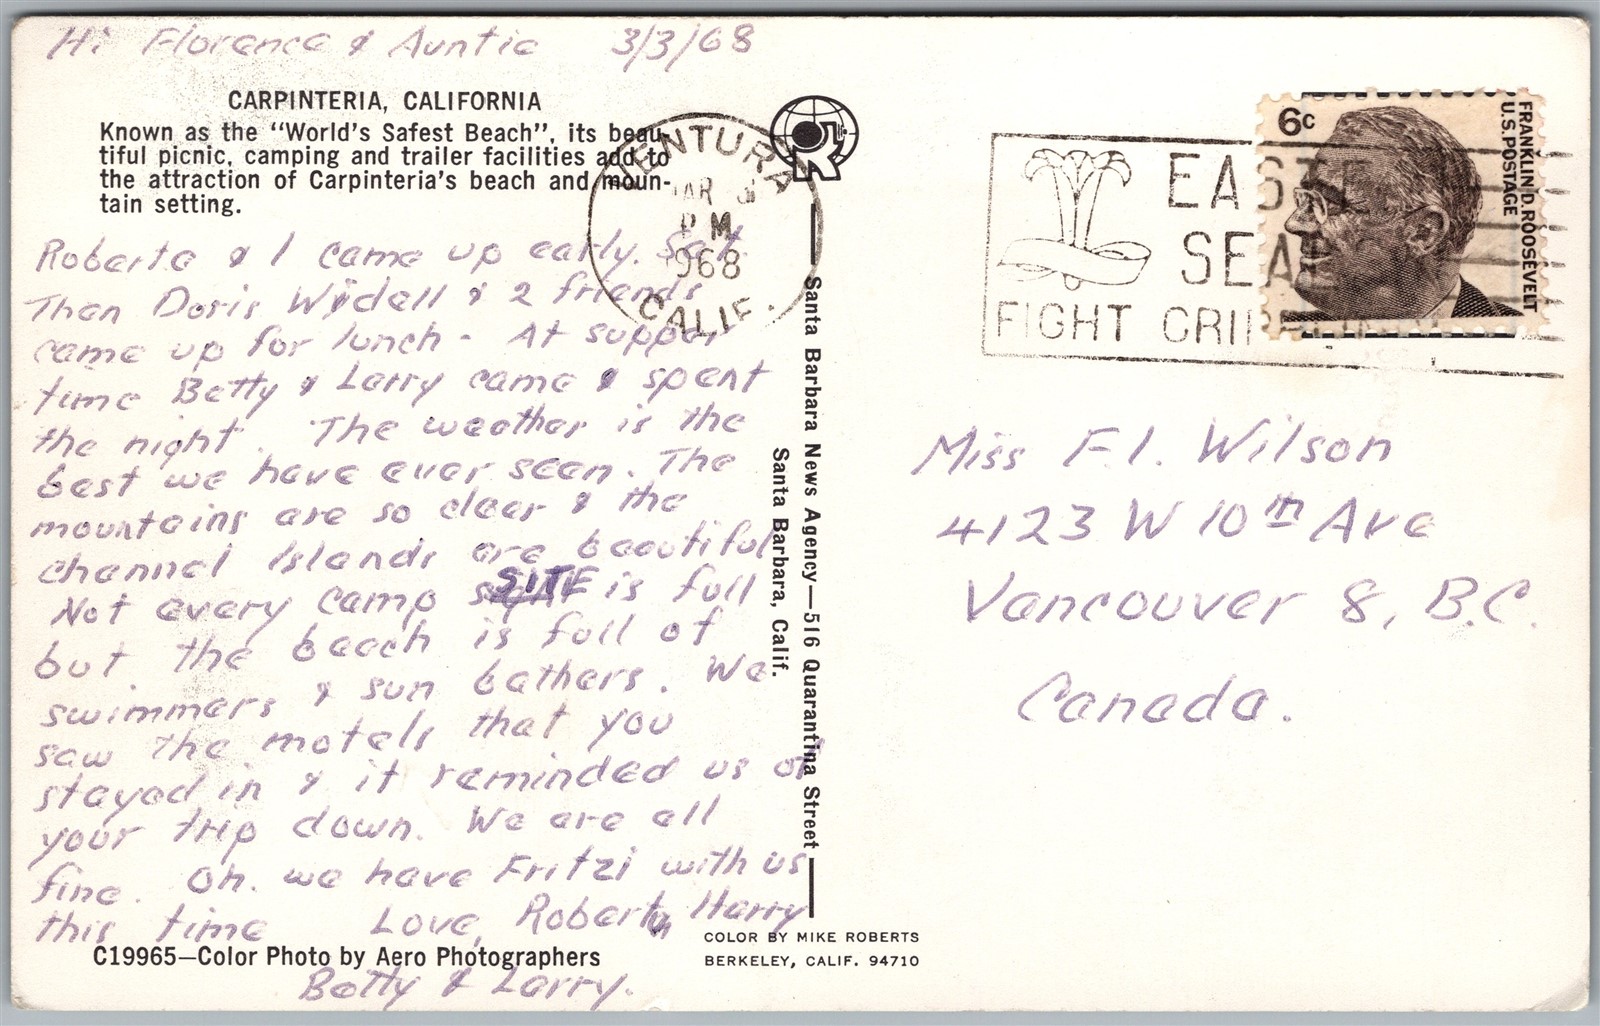 Hi Florence & Auntie 3/3/68
CARPINTERIA, CALIFORNIA
Known as the "World's Safest Beach", its beau-
tiful picnic, camping and trailer facilities add to
the attraction of Carpinteria's beach and moun-
tain setting.
Roberta & I came up early. Sat.
Then Doris Widell & 2 friends
came up for lunch - At supper
time Betty & Larry came & spent
the night. The weather is the
best we have ever seen. The
mountains are so clear & the
channel Islands are beautiful
Not every camp SITE is full
but the beach is full of
swimmers & sun bathers. We
saw the motels that you
stayed in & it reminded us of
your trip down. We are all
fine. Oh. we have Fritzi with us
this time Love, Roberta, Harry
Betty & Larry.
C19965—Color Photo by Aero Photographers
COLOR BY MIKE ROBERTS
BERKELEY, CALIF. 94710
Santa Barbara News Agency—516 Quarantina Street
Santa Barbara, Calif.
VENTURA
MAR
PM
1968
CALIF.
EAST
SEA
FIGHT CRIP
6c
FRANKLIN D. ROOSEVELT
U.S. POSTAGE
Miss F.I. Wilson
4123 W 10th Ave
Vancouver 8, B.C.
Canada.